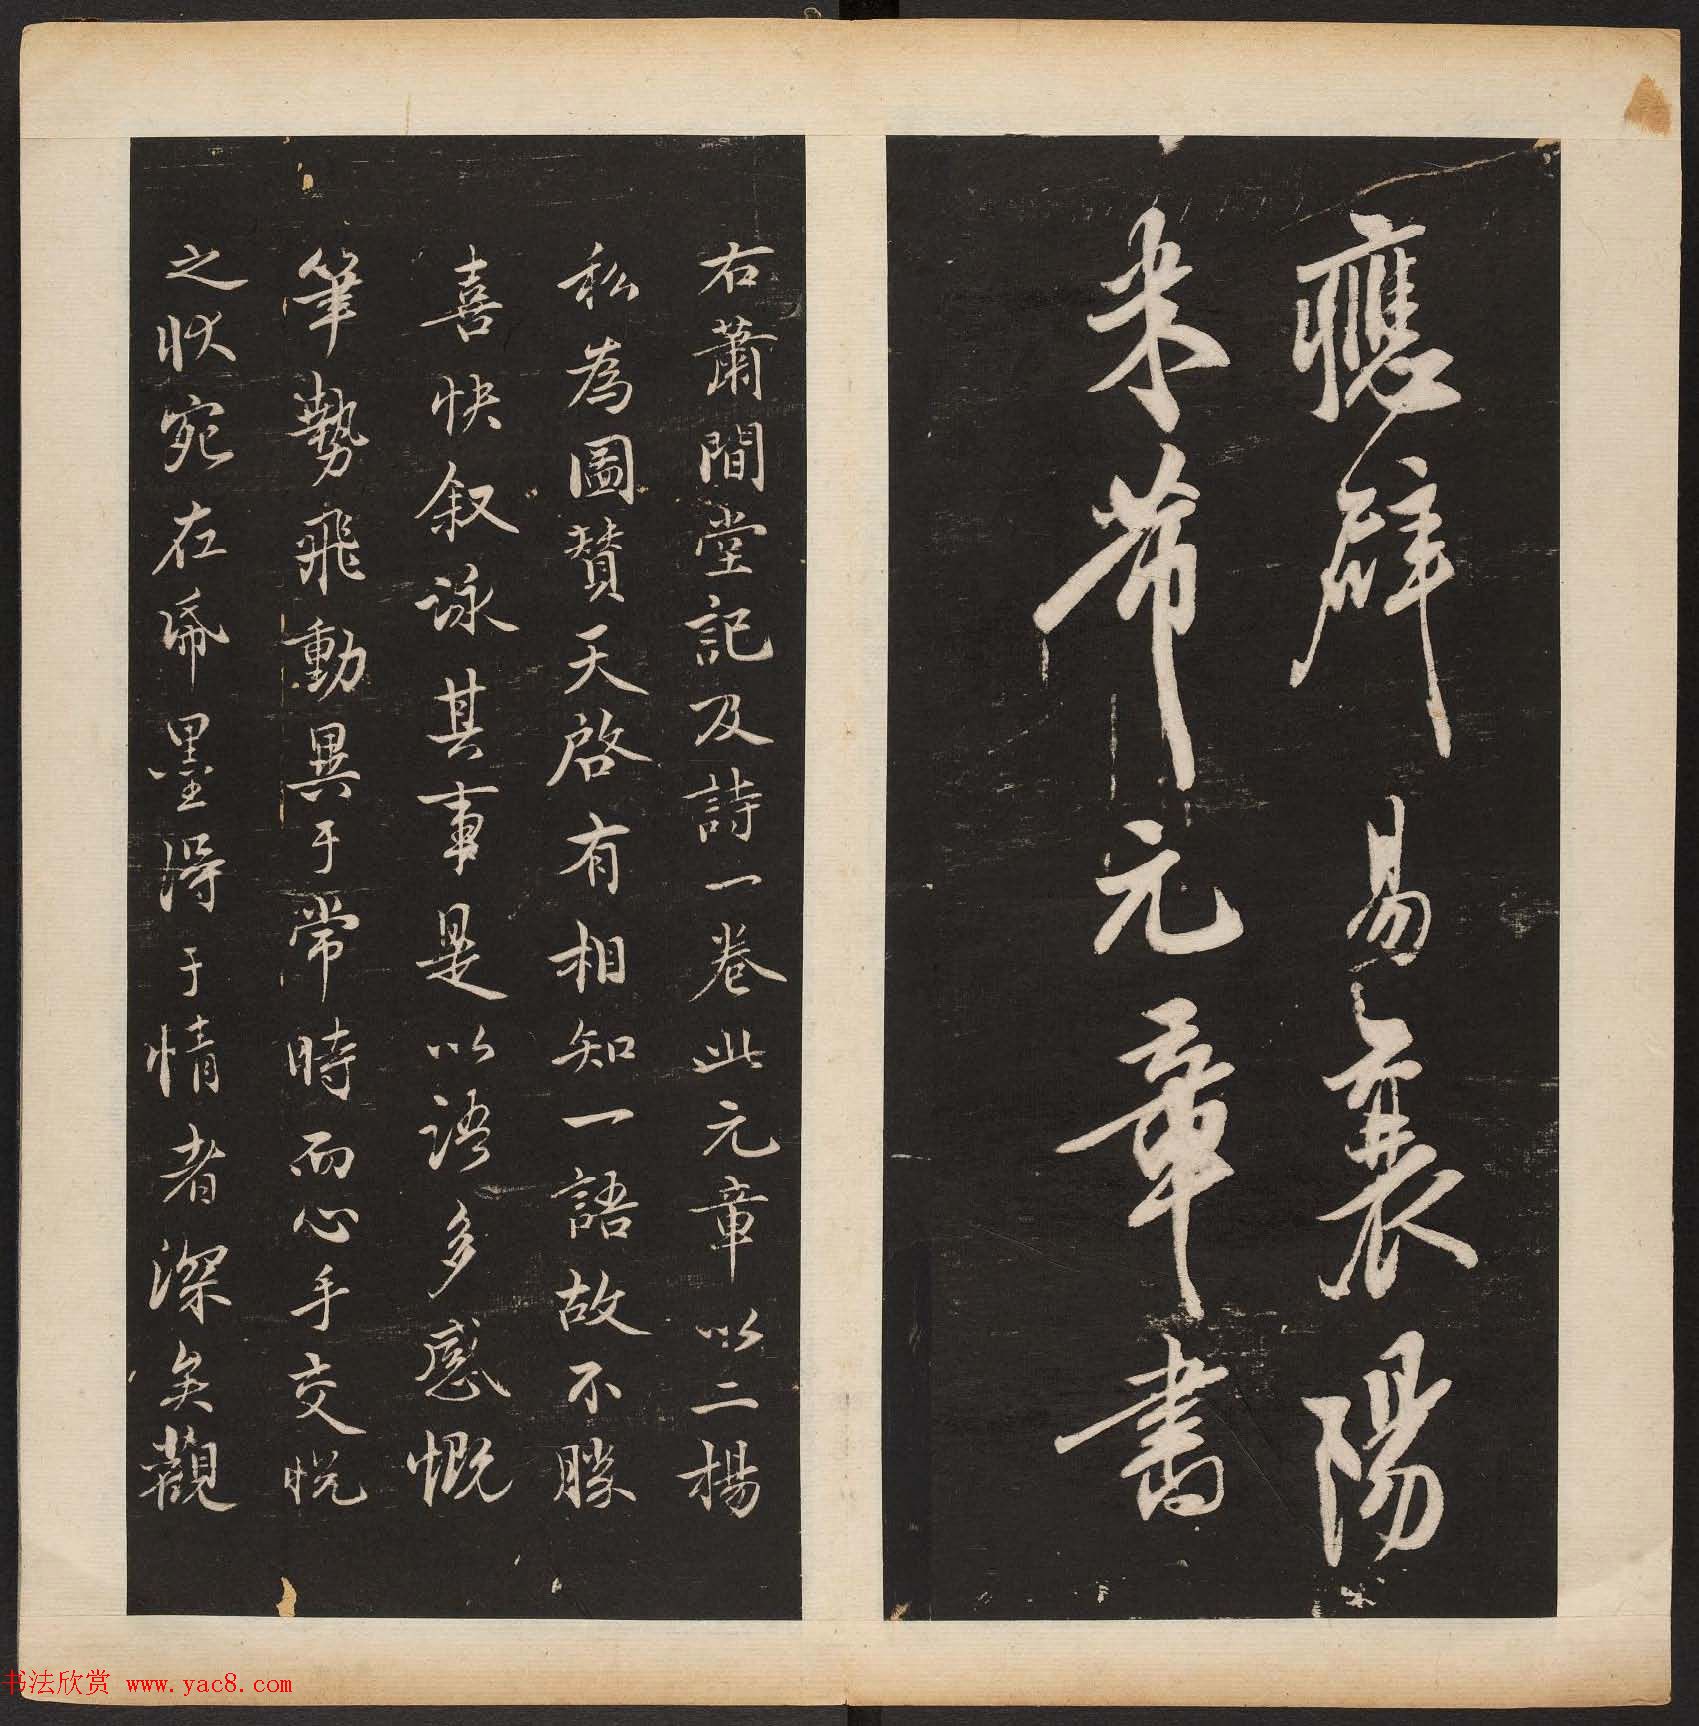 應辟易襄陽
米芾元章書
右蕭閒堂記及詩一卷此元章以二楊
私為圖贊天啓有相知一語故不勝
喜快叙詠其事是以語多感慨
筆勢飛動異于常時而心手交悅
之狀宛在紙墨得于情者深矣觀
书法欣赏 www.yac8.com